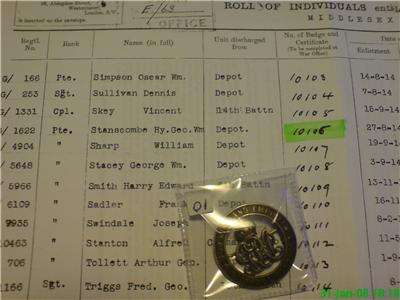 58, Abingdon Street,
Westminster,
London, S.W.
E/68
OFFICE
ROLL OF INDIVIDUALS
MIDDLESEX
Regtl. No. Rank Name (in full) Unit discharged from No. of Badge and Certificate (To be completed by War Office) Enlistment
G/ 166 Pte. Simpson Oscar Wm. Depot 10103 14-8-14
G/ 253 Sgt. Sullivan Dennis Depot 10104 7-8-14
G/ 1331 Cpl. Skey Vincent 14th Battn 10105 15-9-14
1622 Pte. Stanscombe Hy.Geo.Wm Depot. 10106 27-8-14
4904 " Sharp William Depot 10107
5648 " Stacey George Wm. Depot 10108
5966 " Smith Harry Edward Battn 10109
6109 " Sadler Frank Depot 10110
7935 " Swindale Joseph 10111
" Stanton Alfred 10112
706 " Tollett Arthur Geo. 10113
1166 Sgt. Triggs Fred. Geo.
01
31-Jan-08